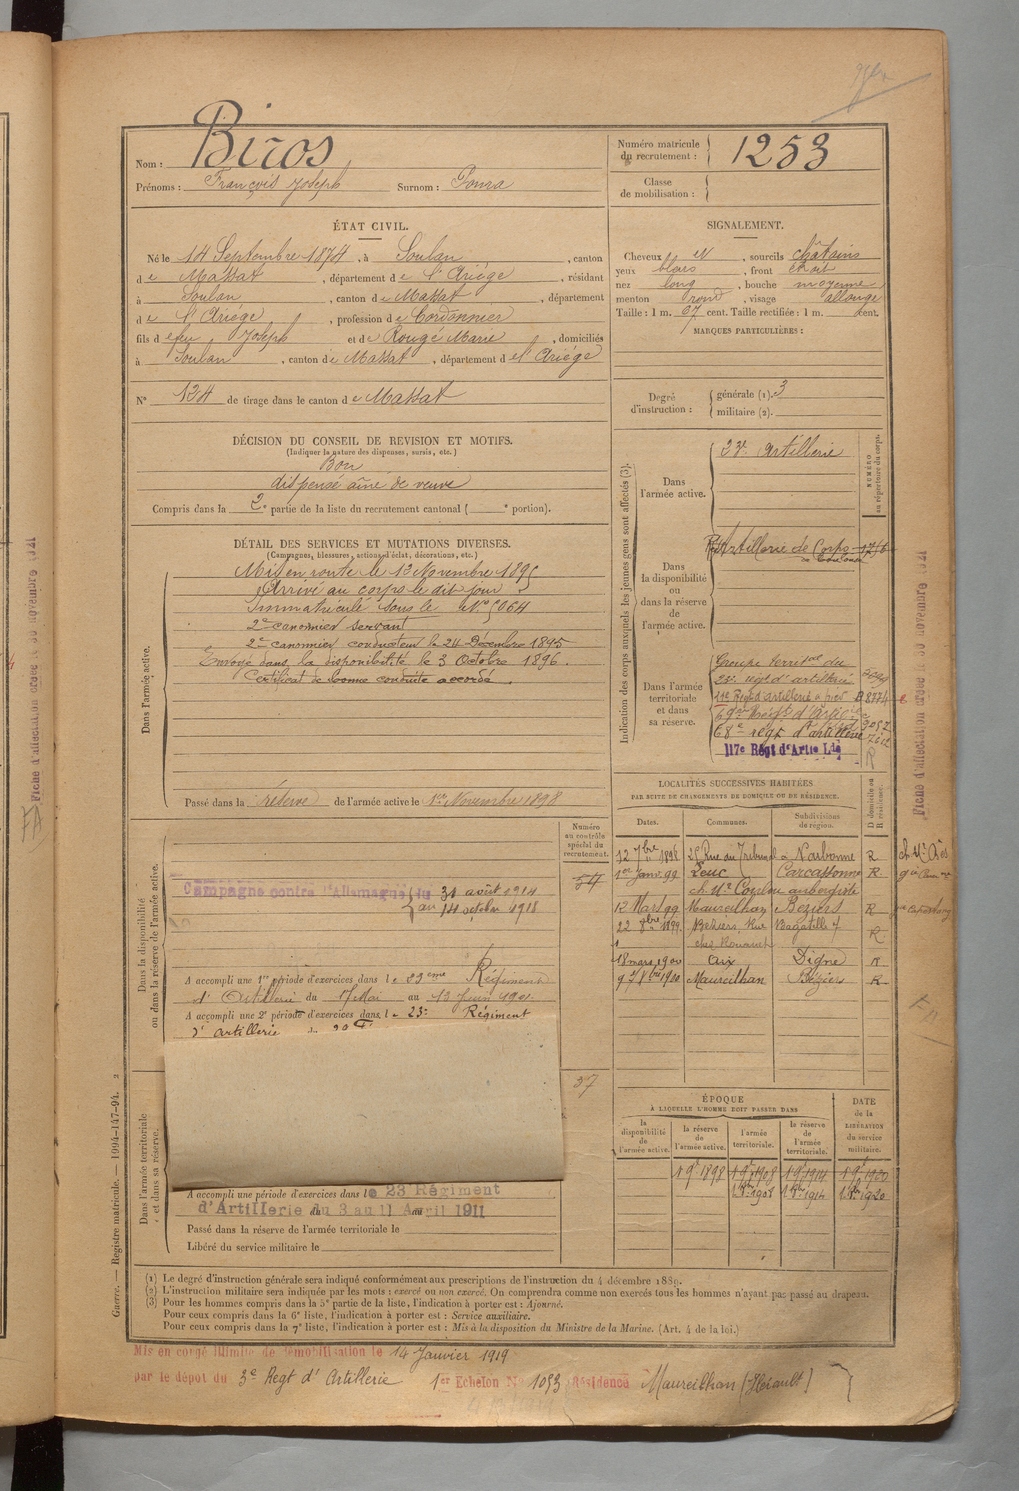 Nom : Biros
Prénoms : François Joseph Surnom : Poura
Numéro matricule du recrutement : 1253
Classe de mobilisation :
ÉTAT CIVIL.
Né le 14 Septembre 1874, à Soulan, canton
de Massat, département de l'Ariége, résidant
à Soulan, canton de Massat, département
de l'Ariege, profession de Cordonnier
fils d efeu Joseph et de Rougé Marie, domiciliés
à Soulan, canton de Massat, département de l'Ariége
N° 124 de tirage dans le canton de Massat
SIGNALEMENT.
Cheveux N, sourcils châtains
yeux bleus, front étroit
nez long, bouche moyenne
menton rond, visage allongé
Taille : 1 m. 67 cent. Taille rectifiée : 1 m. cent.
MARQUES PARTICULIÈRES :
Degré d'instruction : générale (1). 3
militaire (2).
DÉCISION DU CONSEIL DE REVISION ET MOTIFS.
(Indiquer la nature des dispenses, sursis, etc.)
Bon
dispensé aîné de veuve
Compris dans la 2e partie de la liste du recrutement cantonal ( e portion).
DÉTAIL DES SERVICES ET MUTATIONS DIVERSES.
(Campagnes, blessures, actions d'éclat, décorations, etc.)
Dans l'armée active.
Mis en route le 13 Novembre 1895
Arrivé au corps le dit jour
Immatriculé sous le N° 5064
2e canonnier servant
2e canonnier conducteur le 24 Décembre 1895
Envoyé dans la disponibilité le 3 Octobre 1896.
Certificat de bonne conduite accordé.
Passé dans la réserve de l'armée active le 1er Novembre 1898
Indication des corps auxquels les jeunes gens sont affectés (3).
NUMÉRO au répertoire du corps.
Dans l'armée active.
23e Artillerie
Dans la disponibilité ou dans la réserve de l'armée active.
Artillerie de Corps
de Toulouse
Dans l'armée territoriale et dans sa réserve.
Groupe territal du
23e régt d'artillerie
11e Régt d'artillerie à pied 8774
68e régt d'artillerie
117e Régt d'Artie Lde
Fiche d'affectation créée le 30 novembre 1921
Fiche d'affectation créée le 30 novembre 1921
FA
Dans la disponibilité ou dans la réserve de l'armée active.
Numéro au contrôle spécial du recrutement.
54
Campagne contre l'Allemagne du 31 août 1914
au 14 octobre 1918
A accompli une 1re période d'exercices dans le 23eme Régiment
d'Artillerie du 17 Mai au 13 Juin 1901
A accompli une 2e période d'exercices dans le 23e Régiment
d'artillerie
37
Dans l'armée territoriale et dans sa réserve.
A accompli une période d'exercices dans le 23 Régiment
d'Artillerie du 3 au 11 Avril 1911
Passé dans la réserve de l'armée territoriale le
Libéré du service militaire le
LOCALITÉS SUCCESSIVES HABITÉES
PAR SUITE DE CHANGEMENTS DE DOMICILE OU DE RÉSIDENCE.
Dates. Communes. Subdivisions de région. D domicile ou R résidence.
12 7bre 1898 25 Rue du Tribunal à Narbonne R
1er Janv. 99 Leuc Carcassonne R
ch. Mr aubergiste
12 Mars 99 Maureilhan Beziers R
22 8bre 1899 Béziers, Rue Bagatelle 7 R
18 mars 1900 Aix Digne R
1900 Maureilhan Béziers R
ÉPOQUE
À LAQUELLE L'HOMME DOIT PASSER DANS
la disponibilité de l'armée active. la réserve de l'armée active. l'armée territoriale. la réserve de l'armée territoriale. DATE de la LIBÉRATION du service militaire.
1 9e 1898 1 9e 1908 1 9e 1914 1 9e 1920
1 8bre 1908 1 8bre 1914 1 8bre 1920
(1) Le degré d'instruction générale sera indiqué conformément aux prescriptions de l'instruction du 4 décembre 1889.
(2) L'instruction militaire sera indiquée par les mots : exercé ou non exercé. On comprendra comme non exercés tous les hommes n'ayant pas passé au drapeau.
(3) Pour les hommes compris dans la 5e partie de la liste, l'indication à porter est : Ajourné.
Pour ceux compris dans la 6e liste, l'indication à porter est : Service auxiliaire.
Pour ceux compris dans la 7e liste, l'indication à porter est : Mis à la disposition du Ministre de la Marine. (Art. 4 de la loi.)
Guerre. — Registre matricule. — 1994-147-94. 2
Mis en congé illimité de démobilisation le 14 Janvier 1919
par le dépôt du 3e Regt d'Artillerie 1er Echelon N° 1093 Résidence Maureilhan (Hérault)